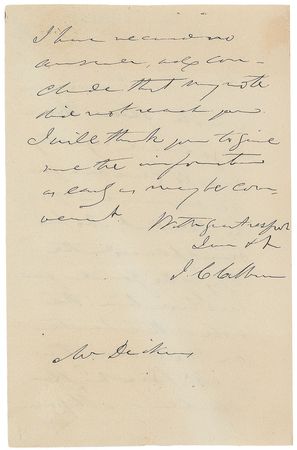 I have received no
answer, & con-
clude that my note
did not reach you.
I will thank you to give
me the information
as early as may be con-
venient.
With great respect
I am &c
J. C. Calhoun
Mr. Dickins